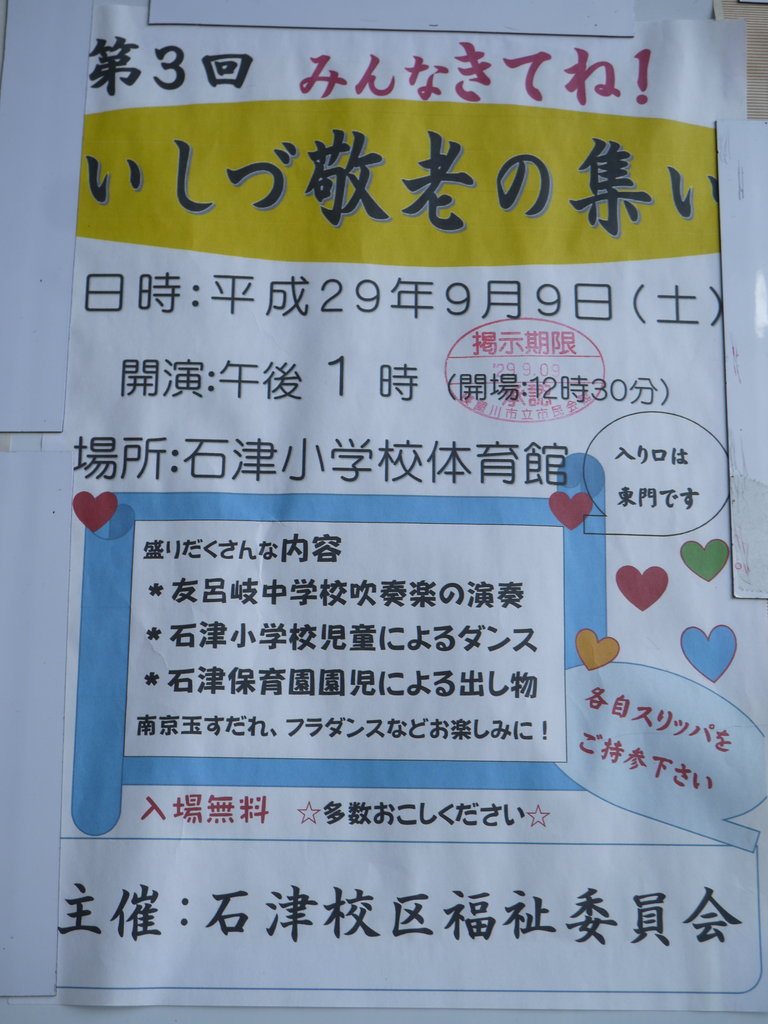 第3回 みんなきてね！
いしづ敬老の集い
日時:平成29年9月9日(土)
開演:午後 1 時 (開場:12時30分)
掲示期限
'29.9.09
承認
寝屋川市立市民会館
場所:石津小学校体育館
入り口は
東門です
盛りだくさんな内容
*友呂岐中学校吹奏楽の演奏
*石津小学校児童によるダンス
*石津保育園園児による出し物
南京玉すだれ、フラダンスなどお楽しみに！
各自スリッパを
ご持参下さい
入場無料 ☆多数おこしください☆
主催:石津校区福祉委員会